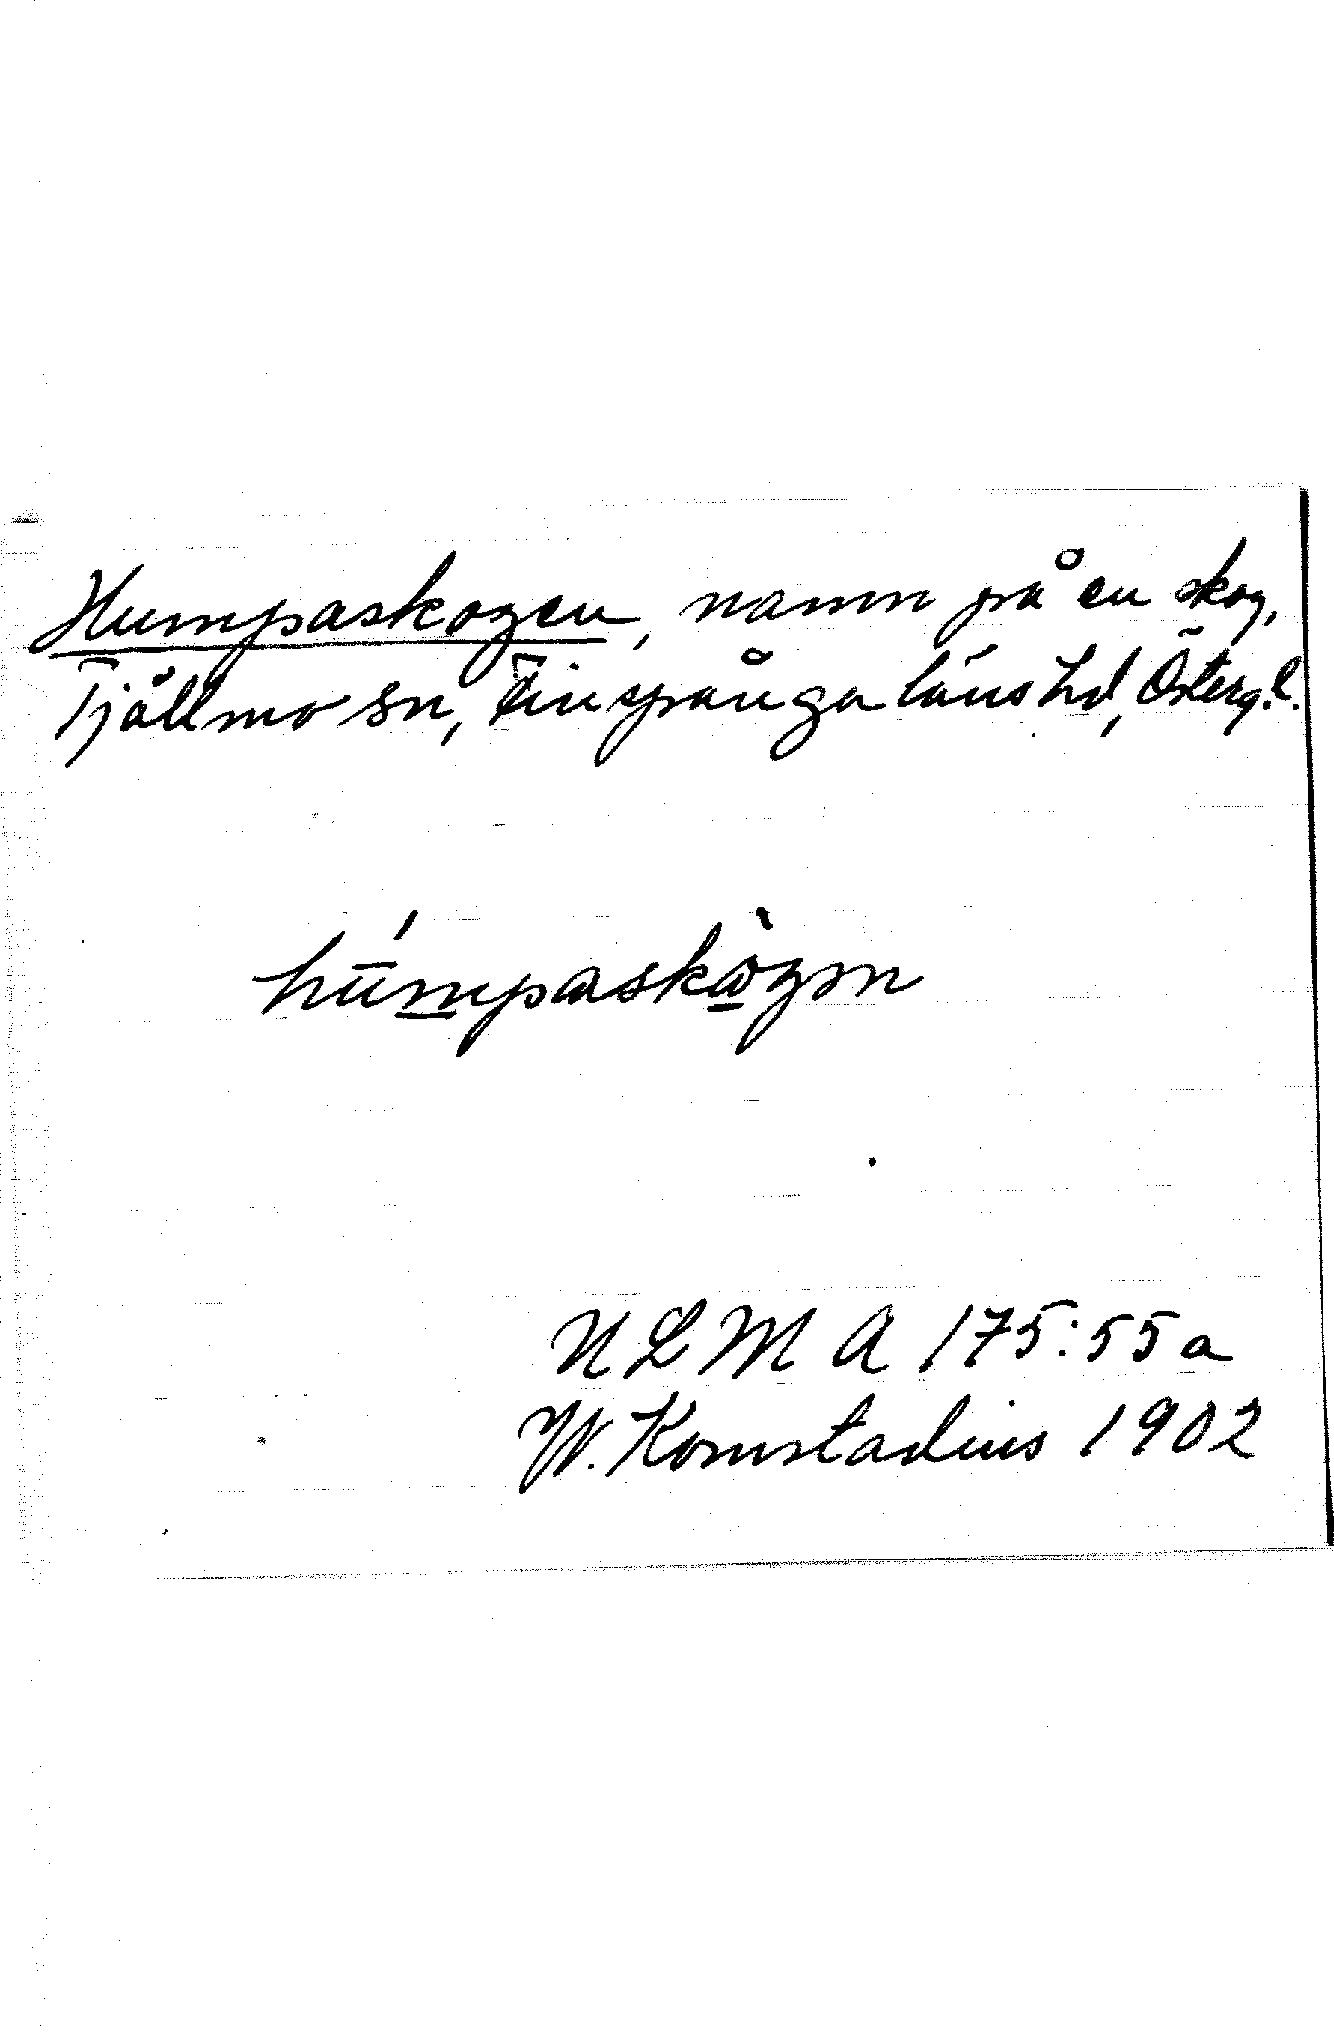 Humpaskogen, namn på en skog,
Tjällmo sn, Finspånga läns hd, Österg.l.
húmpaskògən
ULMA 175:55a
W. Komstadius 1902